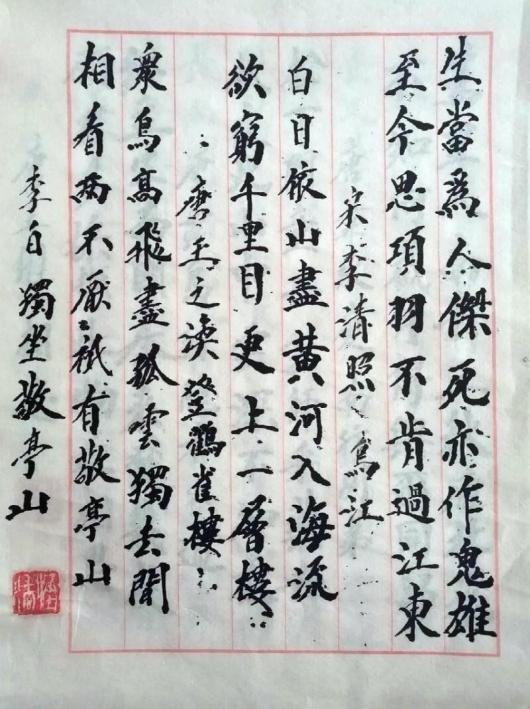 生當爲人傑死亦作鬼雄
至今思項羽不肯過江東
宋李清照 烏江
白日依山盡黃河入海流
欲窮千里目更上一層樓
唐王之渙登鸛雀樓
衆鳥高飛盡孤雲獨去閒
相看兩不厭祗有敬亭山
李白獨坐敬亭山